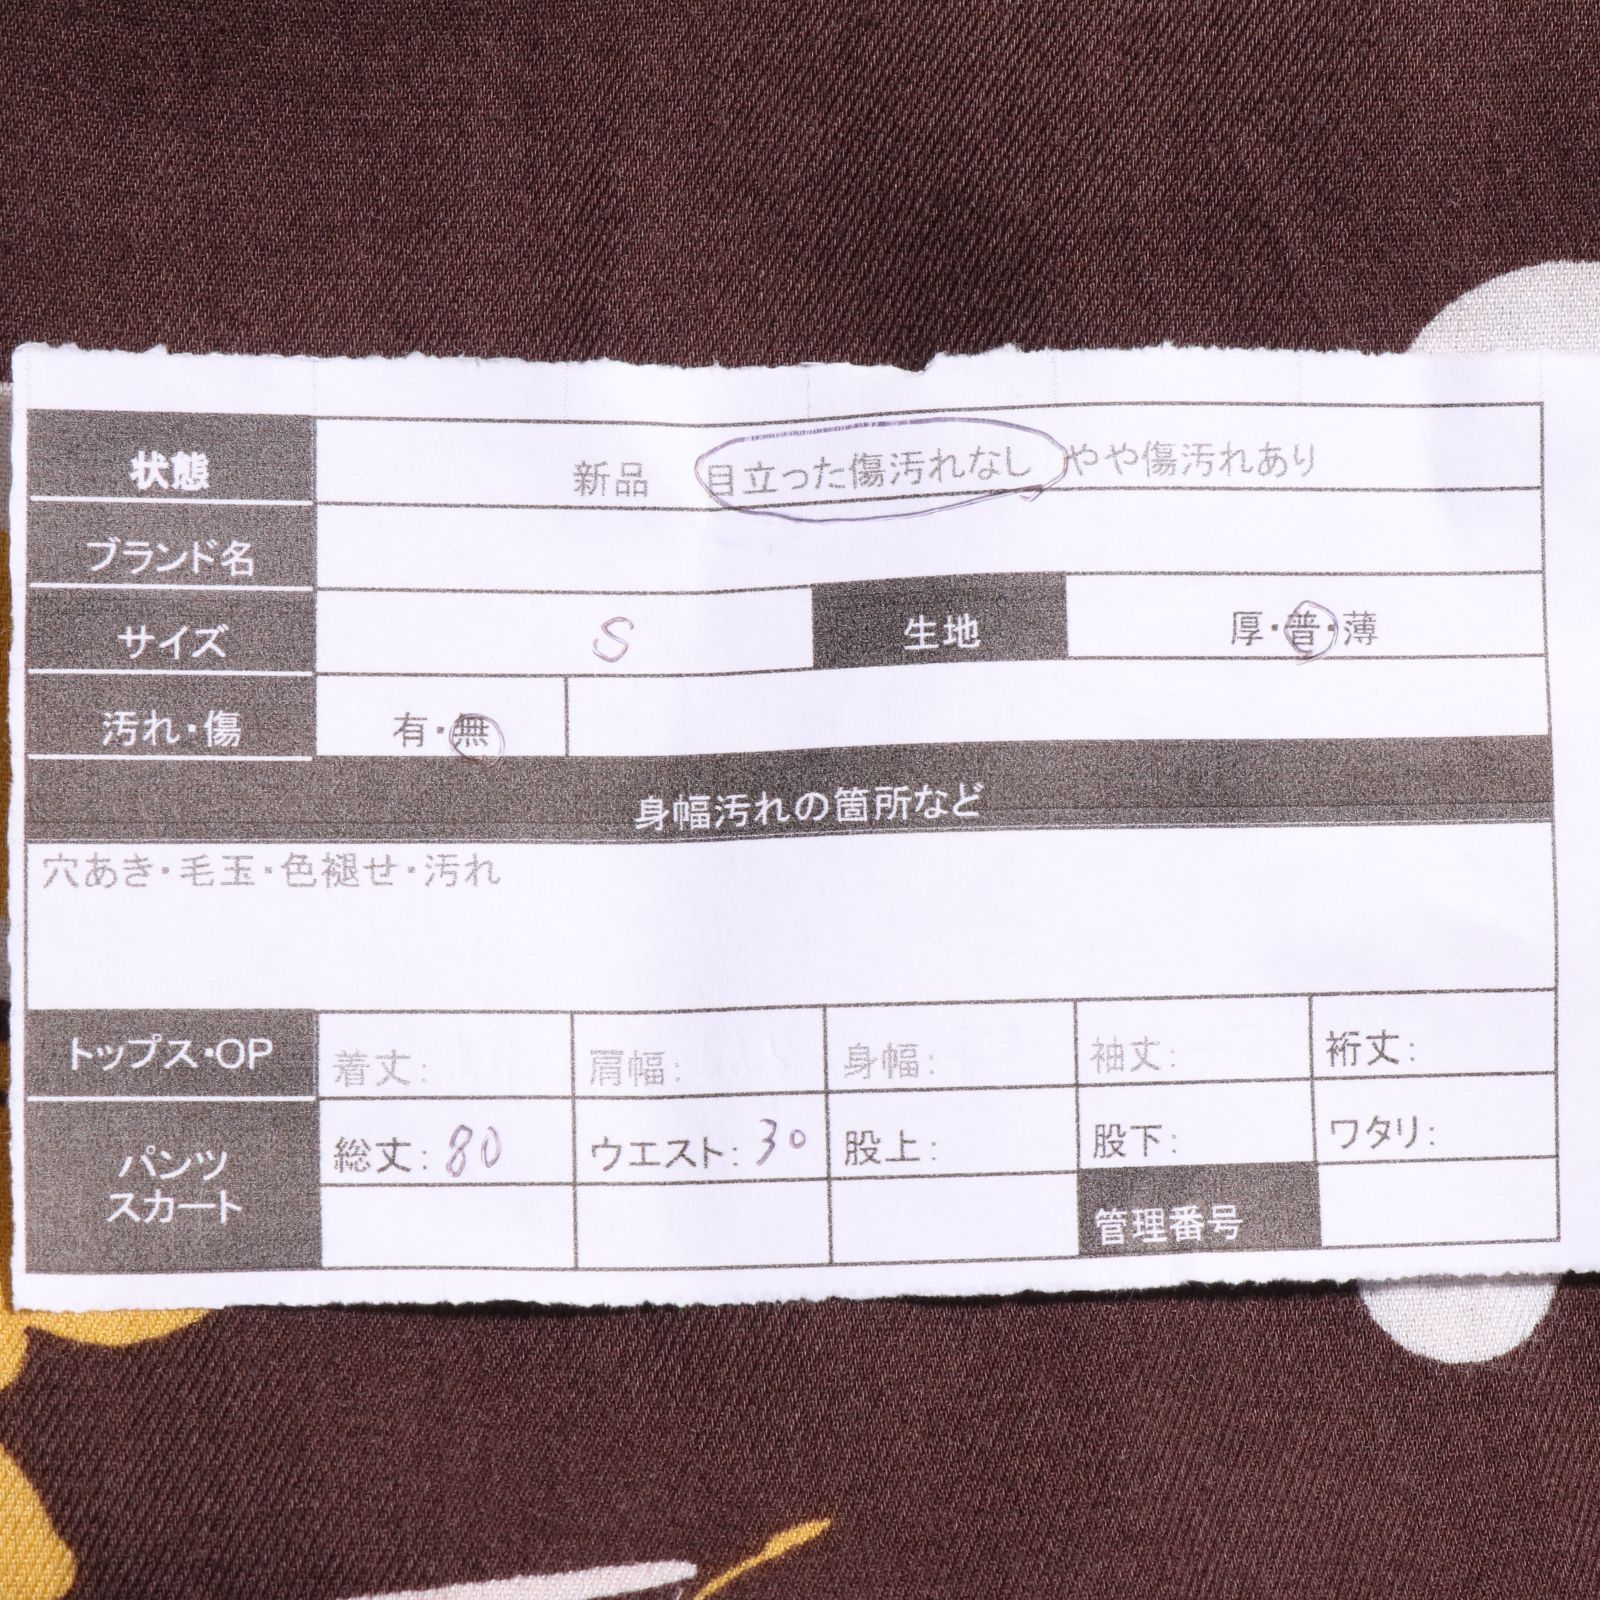 状態 新品 目立った傷汚れなし やや傷汚れあり
ブランド名
サイズ S 生地 厚・普・薄
汚れ・傷 有・無
身幅汚れの箇所など
穴あき・毛玉・色褪せ・汚れ
トップス・OP 着丈: 肩幅: 身幅: 袖丈: 裄丈:
パンツ スカート 総丈: 80 ウエスト: 30 股上: 股下: ワタリ:
管理番号